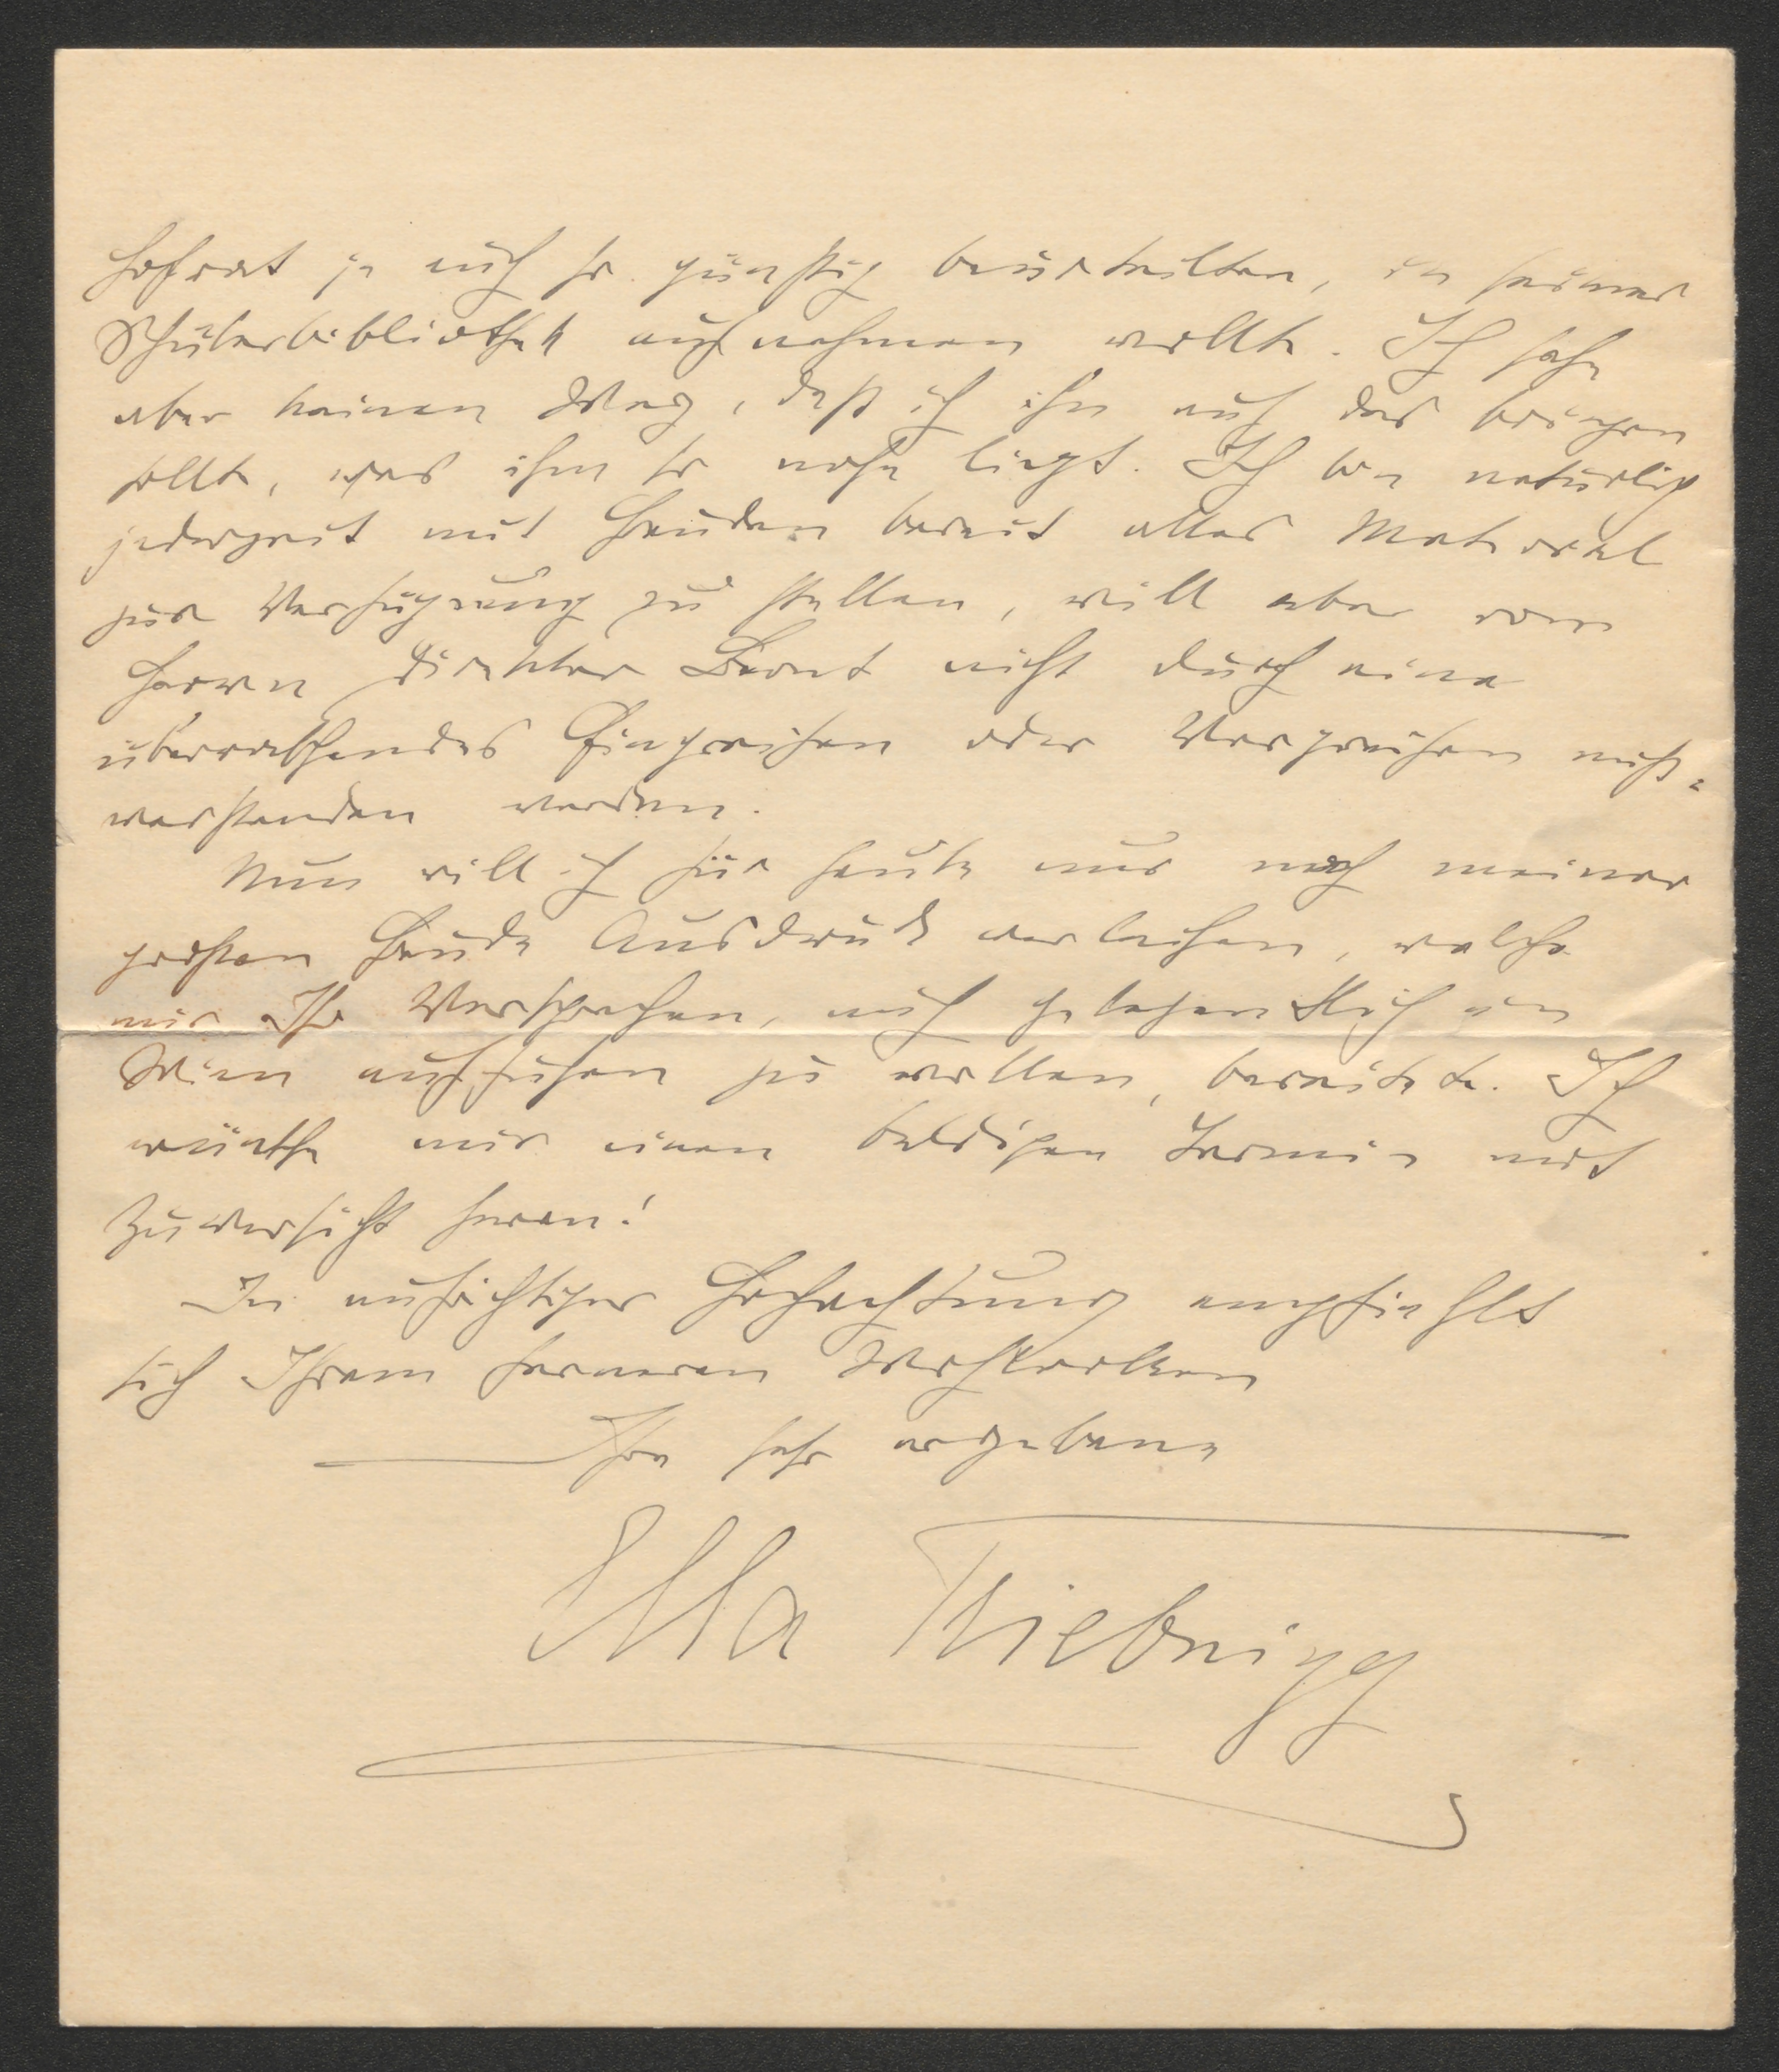 Hofrat ja auch so günstig beurteilten, in seiner
Schülerbibliothek aufnehmen wollte. Ich sehe
aber keinen Weg, daß ich ihn auf das bringen
sollte, was ihm so nahe liegt. Ich bin natürlich
jederzeit mit Freuden bereit alles Material
zur Verfügung zu stellen, will aber vom
Herrn Direktor nicht durch eine
überraschendes Eingreifen oder Vorgreifen miß-
verstanden werden.
Nun will ich für heute nur noch meiner
großen Freude Ausdruck verleihen, welche
mir Ihr Versprechen, mich gelegentlich in
Wien aufsuchen zu wollen, bereitete. Ich
wünsche mir einen baldigen Termin mit
Zuversicht heran!
In aufrichtiger Hochachtung empfiehlt
sich Ihrem ferneren Wohlwollen
Ihre sehr ergebene
Ella Triebnigg